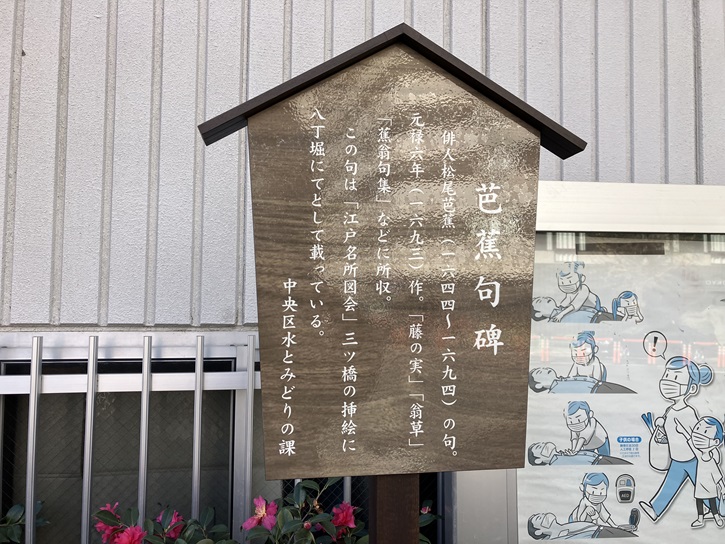 芭蕉句碑
俳人松尾芭蕉(一六四四～一六九四)の句。
元禄六年(一六九三)作。「藤の実」「翁草」
「蕉翁句集」などに所収。
この句は「江戸名所図会」三ツ橋の挿絵に
八丁堀にてとして載っている。
中央区水とみどりの課
!
AED